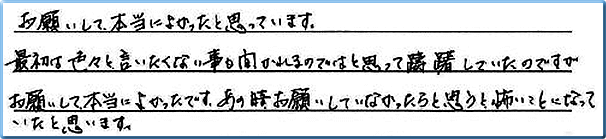 お願いして、本当によかったと思っています。
最初は色々と言いたくない事も聞かれるのではと思って躊躇していたのですが
お願いして本当によかったです。あの時お願いしていなかったらと思うと怖いことになって
いたと思います。